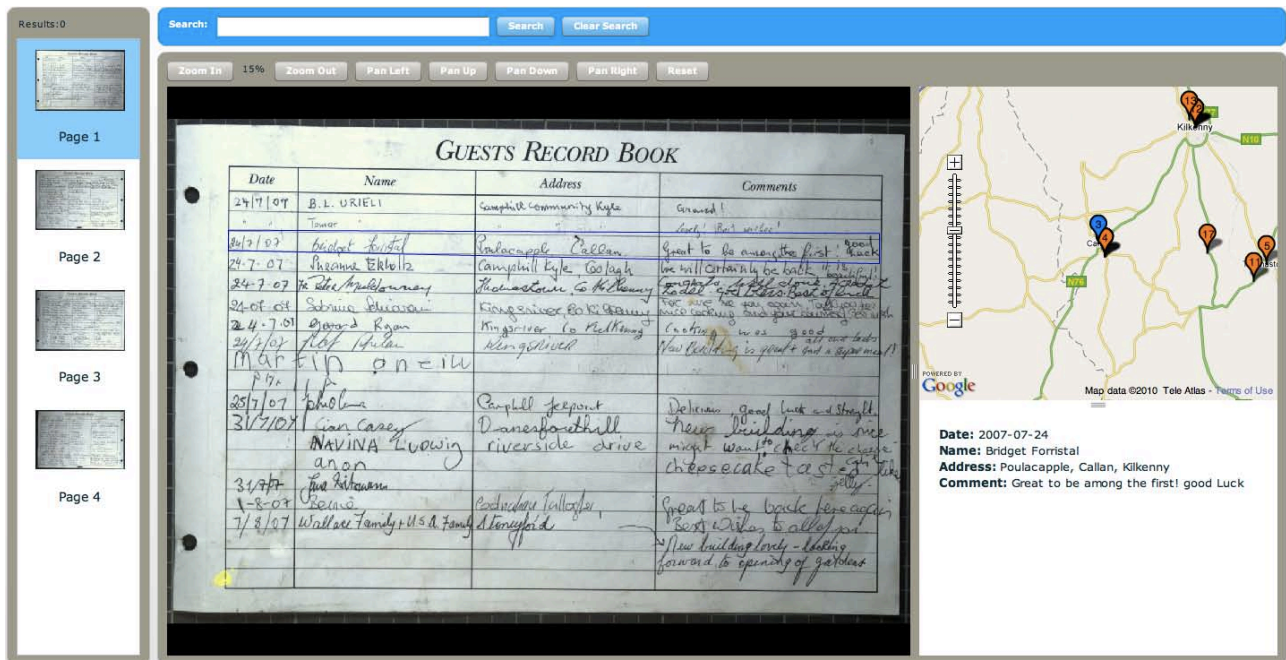 Results:0
Search:
Search
Clear Search
Zoom In
15%
Zoom Out
Pan Left
Pan Up
Pan Down
Pan Right
Reset
Page 1
Page 2
Page 3
Page 4
GUESTS RECORD BOOK
Date Name Address Comments
24/7/07 B.L. URIELI Camphill Community Kyle
" " Lovely! Best wishes!
24/7/07 Bridget Forristal Poulacapple Callan. Great to be among the first! good Luck
24.7.07 Camphill Kyle Coolagh We will certainly be back
24-7-07 Thomastown Co Kilkenny
Sabrina Kingsriver Co Kilkenny nice cooking and your
24.7.07 Gerard Ryan Kingsriver Co Kilkenny Cooking was good
24/7/07 Kingsriver New Building is great and a super meal!
martin oneill
25/7/07 Camphill Jerpoint Delicious, good luck and strength.
31/7/07 Cian Casey Danesforthill New building is nice
NAVINA LUDWIG riverside drive might want to check the
anon cheesecake tastes like
31/7/07 jelly.
1-8-07 Great to be back here again
7/8/07 Wallace Family + U.S.A. Family Stoneyford Best Wishes to all of you
New building lovely - looking
forward to opening of gardens
13
2
Kilkenny
N10
3
4
17
5
11
N76
POWERED BY
Google
Map data ©2010 Tele Atlas - Terms of Use
Date: 2007-07-24
Name: Bridget Forristal
Address: Poulacapple, Callan, Kilkenny
Comment: Great to be among the first! good Luck